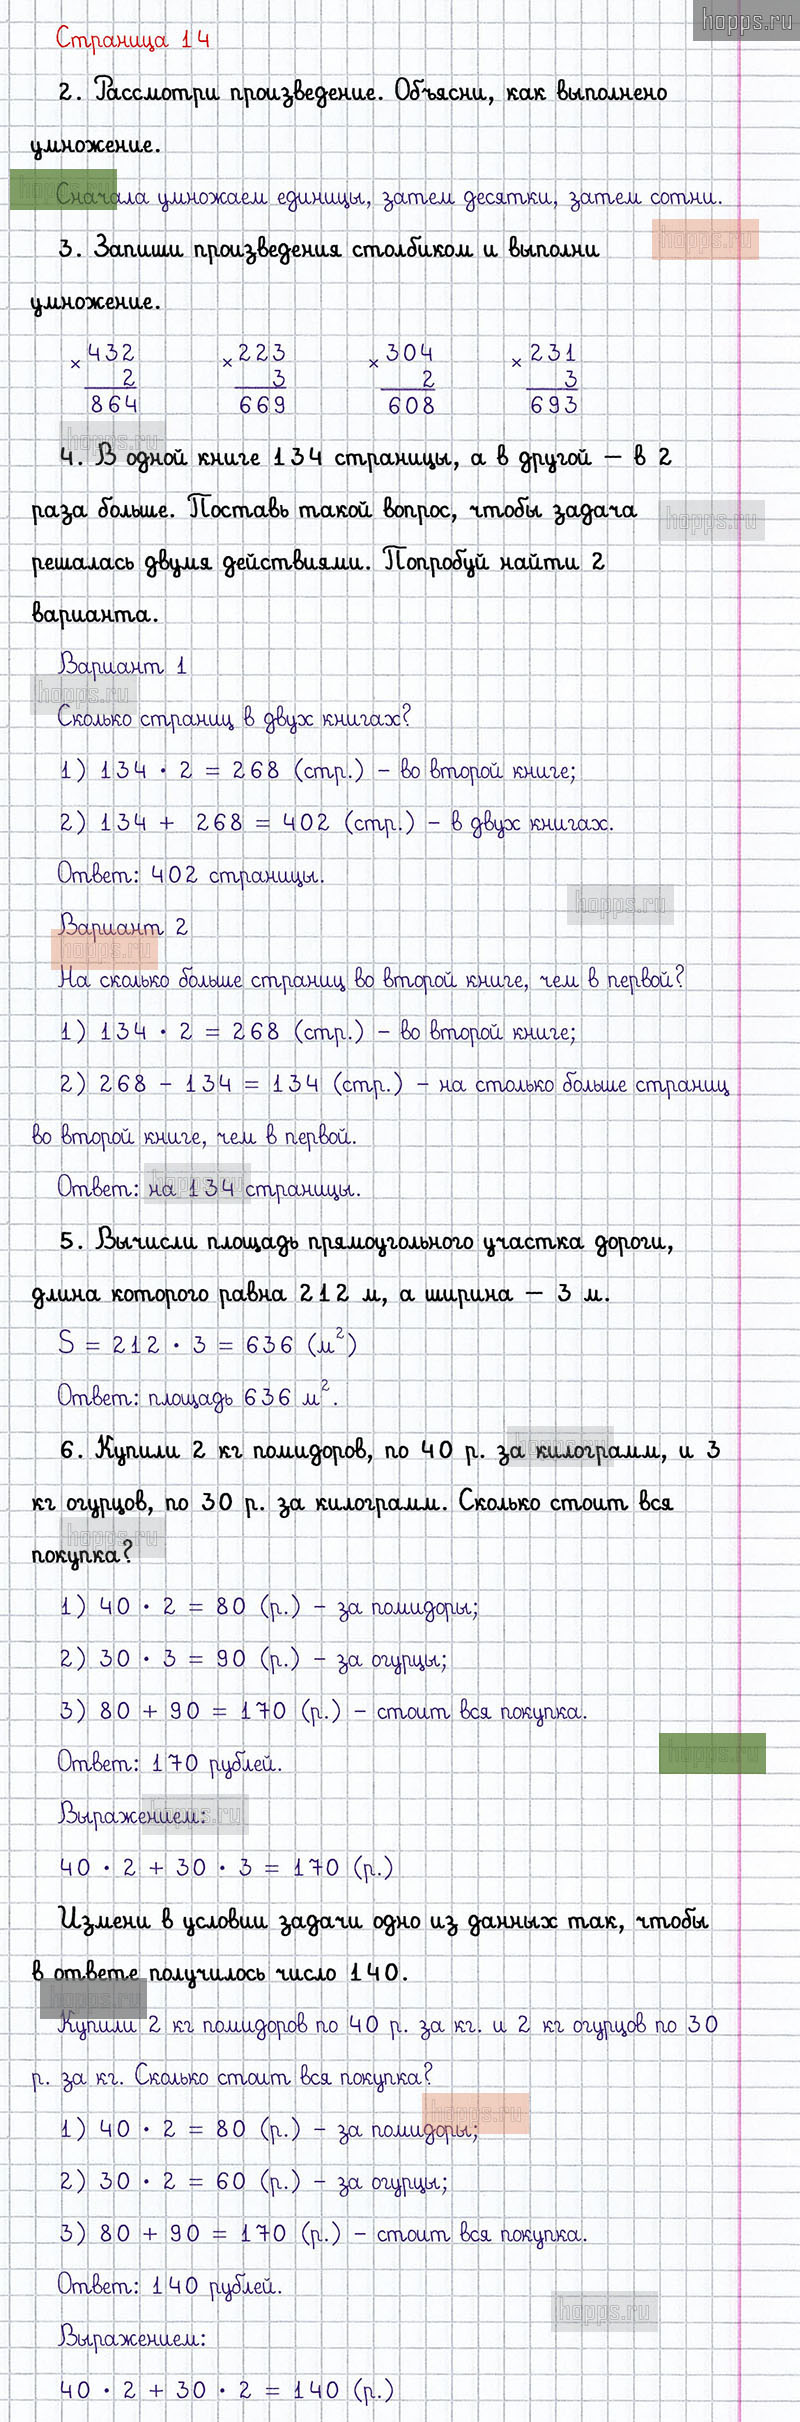 hopps.ru
Страница 14
2. Рассмотри произведение. Объясни, как выполнено
умножение.
hopps.ru
Сначала умножаем единицы, затем десятки, затем сотни.
hopps.ru
3. Запиши произведения столбиком и выполни
умножение.
× 432 × 223 × 304 × 231
2 3 2 3
864 669 608 693
hopps.ru
4. В одной книге 134 страницы, а в другой – в 2
раза больше. Поставь такой вопрос, чтобы задача
hopps.ru
решалась двумя действиями. Попробуй найти 2
варианта.
Вариант 1
hopps.ru
Сколько страниц в двух книгах?
1) 134 · 2 = 268 (стр.) – во второй книге;
2) 134 + 268 = 402 (стр.) – в двух книгах.
Ответ: 402 страницы.
hopps.ru
Вариант 2
hopps.ru
На сколько больше страниц во второй книге, чем в первой?
1) 134 · 2 = 268 (стр.) – во второй книге;
2) 268 – 134 = 134 (стр.) – на столько больше страниц
во второй книге, чем в первой.
hopps.ru
Ответ: на 134 страницы.
5. Вычисли площадь прямоугольного участка дороги,
длина которого равна 212 м, а ширина – 3 м.
S = 212 · 3 = 636 (м²)
Ответ: площадь 636 м².
hopps.ru
6. Купили 2 кг помидоров, по 40 р. за килограмм, и 3
кг огурцов, по 30 р. за килограмм. Сколько стоит вся
hopps.ru
покупка?
1) 40 · 2 = 80 (р.) – за помидоры;
2) 30 · 3 = 90 (р.) – за огурцы;
3) 80 + 90 = 170 (р.) – стоит вся покупка.
hopps.ru
Ответ: 170 рублей.
Выражением:
hopps.ru
40 · 2 + 30 · 3 = 170 (р.)
Измени в условии задачи одно из данных так, чтобы
в ответе получилось число 140.
hopps.ru
Купили 2 кг помидоров по 40 р. за кг. и 2 кг огурцов по 30
р. за кг. Сколько стоит вся покупка?
hopps.ru
1) 40 · 2 = 80 (р.) – за помидоры;
2) 30 · 2 = 60 (р.) – за огурцы;
3) 80 + 90 = 170 (р.) – стоит вся покупка.
Ответ: 140 рублей.
hopps.ru
Выражением:
40 · 2 + 30 · 2 = 140 (р.)